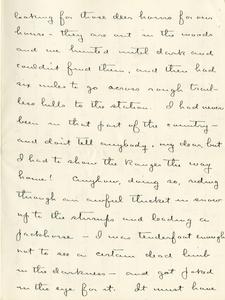 looking for those deer horns for our
house - they are out in the woods
and we hunted until dark and
couldn't find them, and then had
six miles to go across rough trail-
less hills to the station. I had never
been in that part of the country -
and don't tell anybody, my dear, but
I had to show the Ranger the way
home! Anyhow, doing so, riding
through an awful thicket in snow
up to the stirrups and leading a
packhorse - I was tenderfoot enough
not to see a certain dead limb
in the darkness - and got jabbed
in the eye for it. It must have